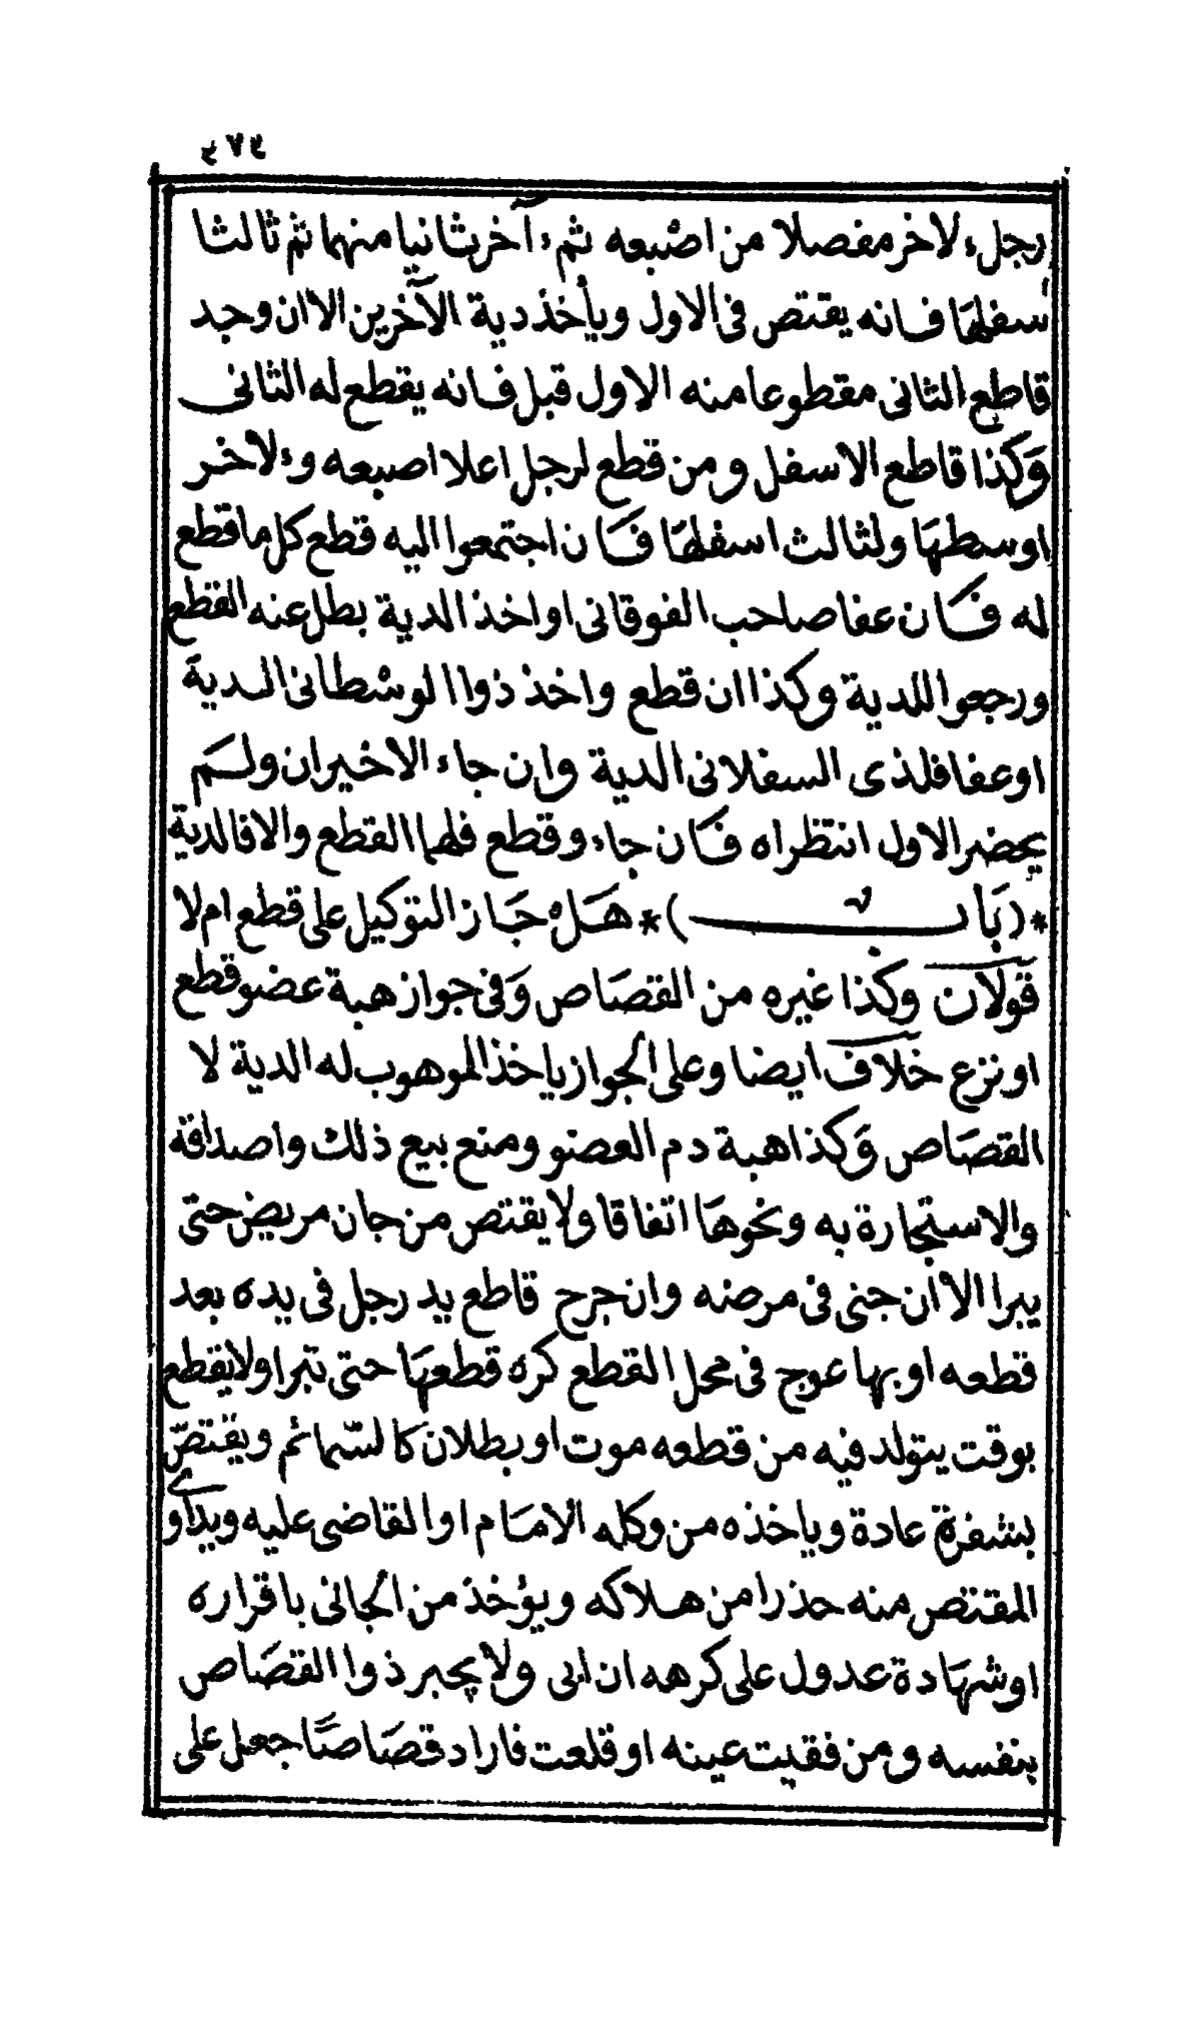 ٢٧٤
رجل لاخر مفصلا من اصبعه ثم آخر ثانيا منهما ثم ثالثا
اسفلها فانه يقتص فى الاول وياخذ دية الآخرين الا ان وجد
قاطع الثانى مقطوعا منه الاول قبل فانه يقطع له الثانى
وكذا قاطع الاسفل ومن قطع لرجل اعلا اصبعه ولاخر
اوسطها ولثالث اسفلها فان اجتمعوا اليه قطع كل ما قطع
له فان عفا صاحب الفوقانى او اخذ الدية بطل عنه القطع
ورجعوا للدية وكذا ان قطع واخذ ذوا الوسطانى الدية
او عفا فلذى السفلانى الدية وان جاء الاخيران ولم
يحضر الاول انتظراه فان جاء وقطع فلهما القطع والا فالدية
*(باب)* هل جاز التوكيل على قطع ام لا
قولان وكذا غيره من القصاص وفى جواز هبة عضو قطع
او نزع خلاف ايضا وعلى الجواز ياخذ الموهوب له الدية لا
القصاص وكذا هبة دم العضو ومنع بيع ذلك واصداقه
والاستجارة به ونحوها اتفاقا ولا يقتص من جان مريض حتى
يبرا الا ان جنى فى مرضه وان جرح قاطع يد رجل فى يده بعد
قطعه او بها عوج فى محل القطع كره قطعها حتى تبرا ولا يقطع
بوقت يتولد فيه من قطعه موت او بطلان كالسمائم ويقتص
بشفرة عادة وياخذه من وكله الامام او القاضى عليه ويداوى
المقتص منه حذرا من هلاكه ويؤخذ من الجانى باقراره
او شهادة عدول على كرهه ان ابى ولا يجبر ذوا القصاص
بنفسه ومن فقيت عينه او قلعت فاراد قصاصا جعل على